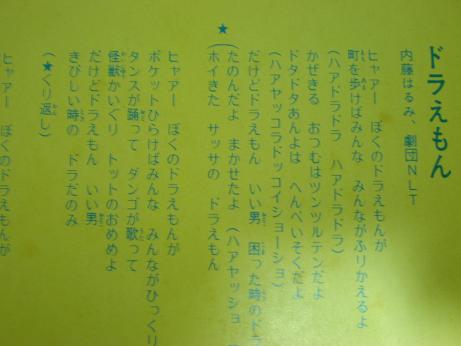 ドラえもん
内藤はるみ、劇団NLT
ヒャアー ぼくのドラえもんが
町を歩けばみんな みんながふりかえるよ
(ハアドラドラ ハアドラドラ)
かぜきる おつむはツンツルテンだよ
ドタドタあんよは へんぺいそくだよ
(ハアヤッコラドッコイショーショ)
だけどドラえもん いい男 困った時のドラ
★(たのんだよ まかせたよ (ハアヤッショ
(ホイきた サッサの ドラえもん
ヒャアー ぼくのドラえもんが
ポケットひらけばみんな みんながひっくり
タンスが踊って ダンゴが歌って
怪獣かいぐり トットのおめめよ
だけどドラえもん いい男
きびしい時の ドラだのみ
(★くり返し)
ヒャアー ぼくのドラえもんが